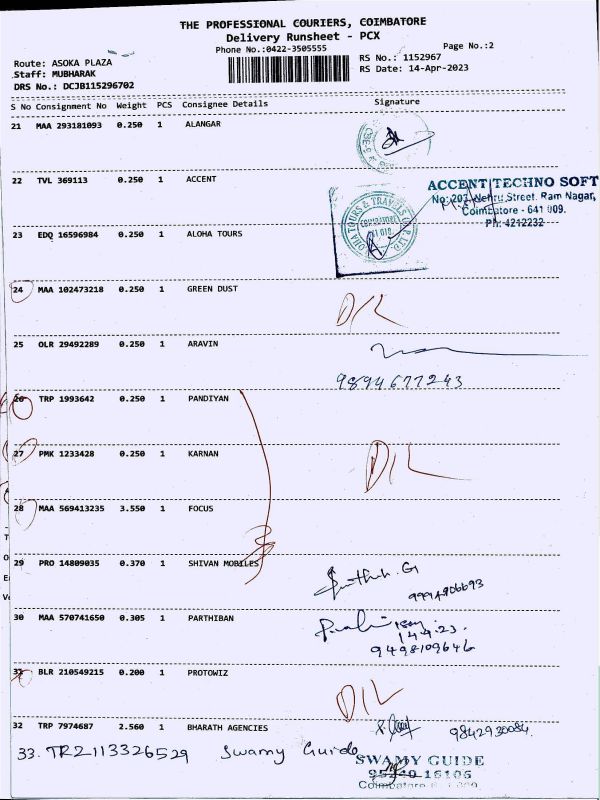 THE PROFESSIONAL COURIERS, COIMBATORE
Delivery Runsheet - PCX
Phone No.:0422-3505555
Page No.:2
Route: ASOKA PLAZA
RS No.: 1152967
Staff: MUBHARAK
RS Date: 14-Apr-2023
DRS No.: DCJB115296702
S No Consignment No Weight PCS Consignee Details Signature
21 MAA 293181093 0.250 1 ALANGAR
22 TVL 369113 0.250 1 ACCENT
ACCENT TECHNO SOFT
No: 207, Nehru Street, Ram Nagar,
Coimbatore - 641 009.
Ph: 4212232
23 EDQ 16596984 0.250 1 ALOHA TOURS
TOURS & TRAVELS
24 MAA 102473218 0.250 1 GREEN DUST
D/L
25 OLR 29492289 0.250 1 ARAVIN
9894677243
26 TRP 1993642 0.250 1 PANDIYAN
27 PMK 1233428 0.250 1 KARNAN
D/L
28 MAA 569413235 3.550 1 FOCUS
29 PRO 14809035 0.370 1 SHIVAN MOBILES
9994906693
30 MAA 570741650 0.305 1 PARTHIBAN
14.4.23.
9498109646
31 BLR 210549215 0.200 1 PROTOWIZ
D/L
32 TRP 7974687 2.560 1 BHARATH AGENCIES
9842930084.
33. TRZ113326529 Swamy Guide
SWAMY GUIDE
95240-16106